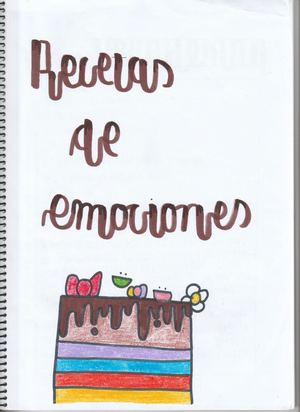 Recetas
de
emociones